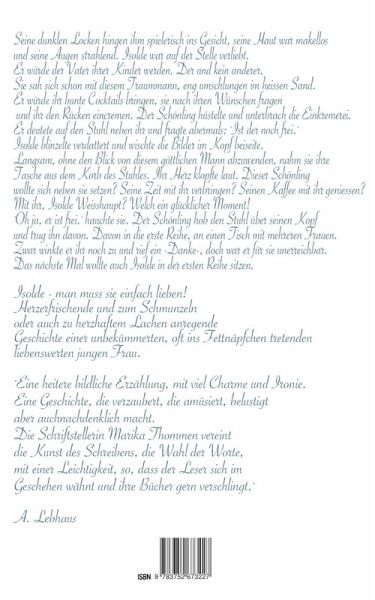 Seine dunklen Locken hingen ihm spielerisch ins Gesicht, seine Haut war makellos
und seine Augen strahlend. Isolde war auf der Stelle verliebt.
Er würde der Vater ihrer Kinder werden. Der und kein anderer.
Sie sah sich schon mit diesem Traummann, eng umschlungen im heissen Sand.
Er würde ihr bunte Cocktails bringen, sie nach ihren Wünschen fragen
und ihr den Rücken eincremen. Der Schönling hüstelte und unterbrach die Einkremerei.
Er deutete auf den Stuhl neben ihr und fragte abermals: 'Ist der noch frei,'
Isolde blinzelte verdattert und wischte die Bilder im Kopf beiseite.
Langsam, ohne den Blick von diesem göttlichen Mann abzuwenden, nahm sie ihre
Tasche aus dem Korb des Stuhles. Ihr Herz klopfte laut. Dieser Schönling
wollte sich neben sie setzen? Seine Zeit mit ihr verbringen? Seinen Kaffee mit ihr geniessen?
Mit ihr, Isolde Weishaupt? Welch ein glücklicher Moment!
'Oh ja, er ist frei.' hauchte sie. Der Schönling hob den Stuhl über seinen Kopf
und trug ihn davon. Davon in die erste Reihe, an einen Tisch mit mehreren Frauen.
Zwar winkte er ihr noch zu und rief ein -Danke-, doch war er für sie unerreichbar.
Das nächste Mal wollte auch Isolde in der ersten Reihe sitzen.
Isolde - man muss sie einfach lieben!
Herzerfrischende und zum Schmunzeln
oder auch zu herzhaftem Lachen anregende
Geschichte einer unbekümmerten, oft ins Fettnäpfchen tretenden
liebenswerten jungen Frau.
'Eine heitere bildliche Erzählung, mit viel Charme und Ironie.
Eine Geschichte, die verzaubert, die amüsiert, belustigt
aber auchnachdenklich macht.
Die Schriftstellerin Marika Thommen vereint
die Kunst des Schreibens, die Wahl der Worte,
mit einer Leichtigkeit, so, dass der Leser sich im
Geschehen wähnt und ihre Bücher gern verschlingt.'
A. Lebhaus
ISBN 9 783752 673227